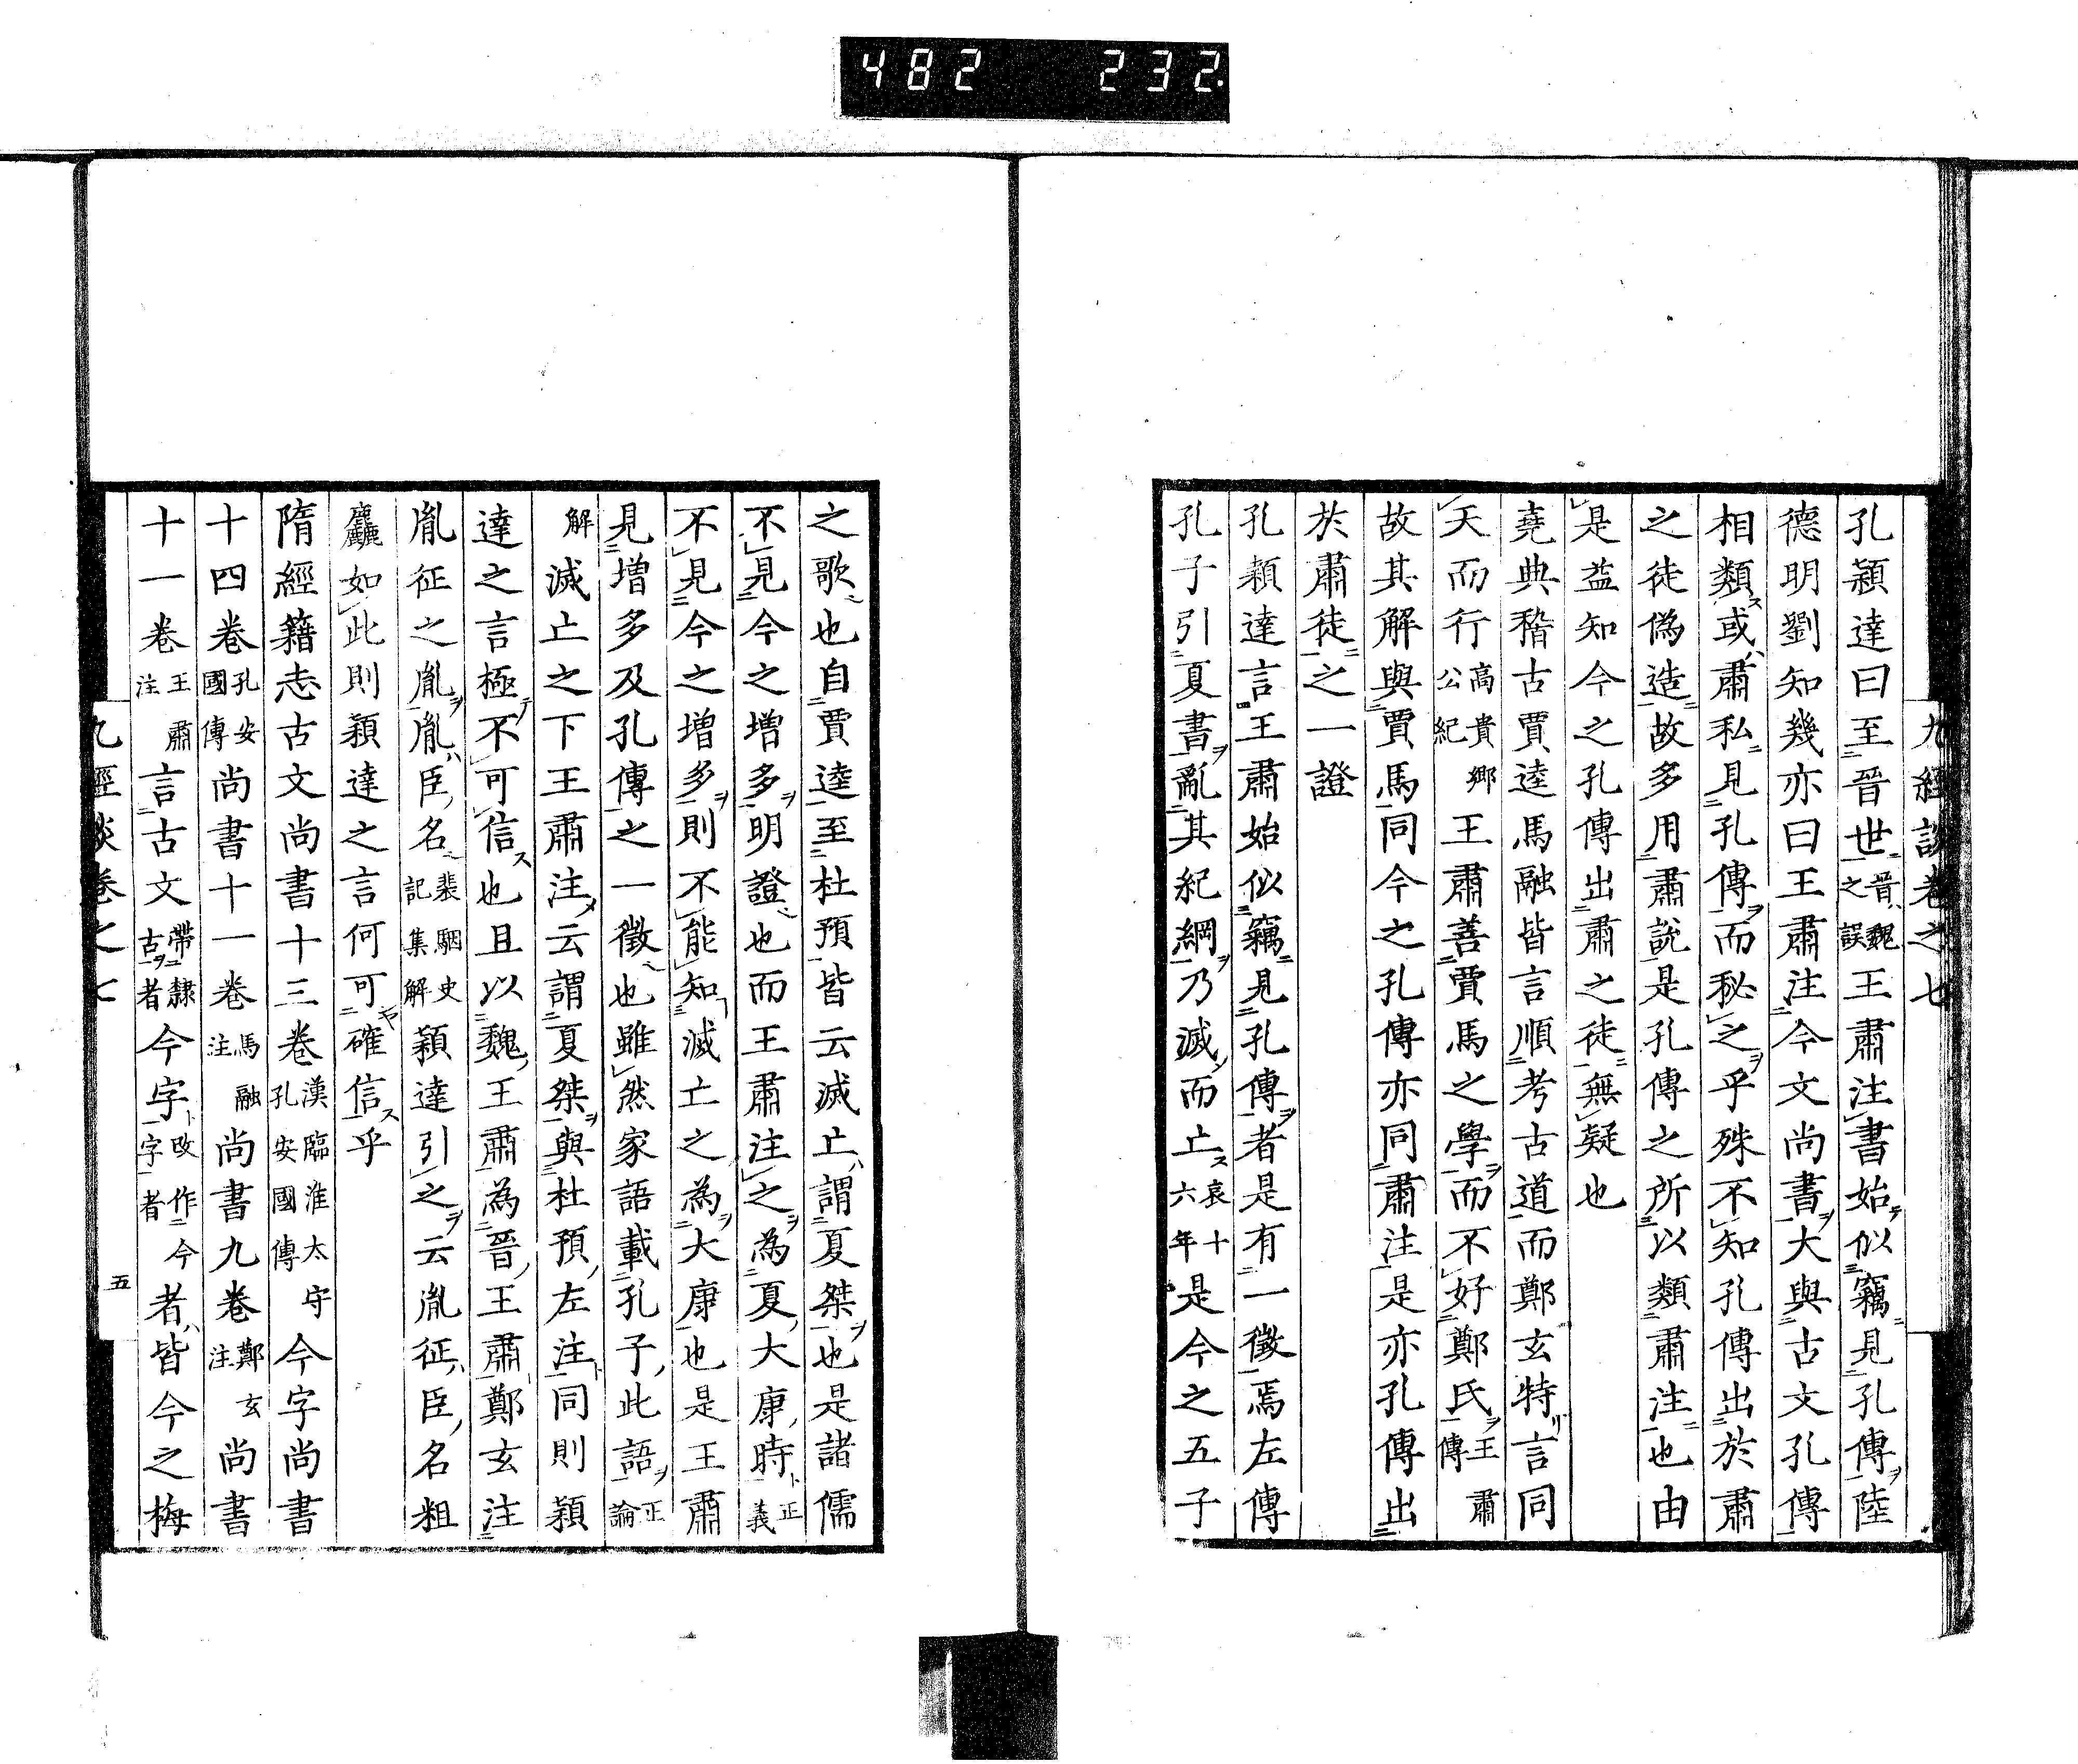 482 232.
九經談卷之七
孔穎達曰至晉世晉魏之誤王肅注書始似竊見孔傳陸
德明劉知幾亦曰王肅注今文尚書大與古文孔傳
相類或肅私見孔傳而秘之乎殊不知孔傳出於肅
之徒偽造故多用肅說是孔傳之所以類肅注也由
是益知今之孔傳出肅之徒無疑也
堯典稽古賈逵馬融皆言順考古道而鄭玄特言同
天而行高貴鄉公紀王肅善賈馬之學而不好鄭氏王肅傳
故其解與賈馬同今之孔傳亦同肅注是亦孔傳出
於肅徒之一證
孔穎達言王肅始似竊見孔傳者是有一徵焉左傳
孔子引夏書亂其紀綱乃滅而亡哀十六年是今之五子
之歌也自賈逵至杜預皆云滅亡謂夏桀也是諸儒
不見今之增多明證也而王肅注之為夏大康時正義
不見今之增多則不能知滅亡之為大康也是王肅
見增多及孔傳之一徵也雖然家語載孔子此語正論
解滅亡之下王肅注云謂夏桀與杜預左注同則穎
達之言極不可信也且以魏王肅為晉王肅鄭玄注
胤征之胤胤臣名裴駰史記集解穎達引之云胤征臣名粗
麤如此則穎達之言何可確信乎
隋經籍志古文尚書十三卷漢臨淮太守孔安國傳今字尚書
十四卷孔安國傳尚書十一卷馬融注尚書九卷鄭玄注尚書
十一卷王肅注言古文帶隸古者今字改作今字者者皆今之梅
九經談卷之七
五